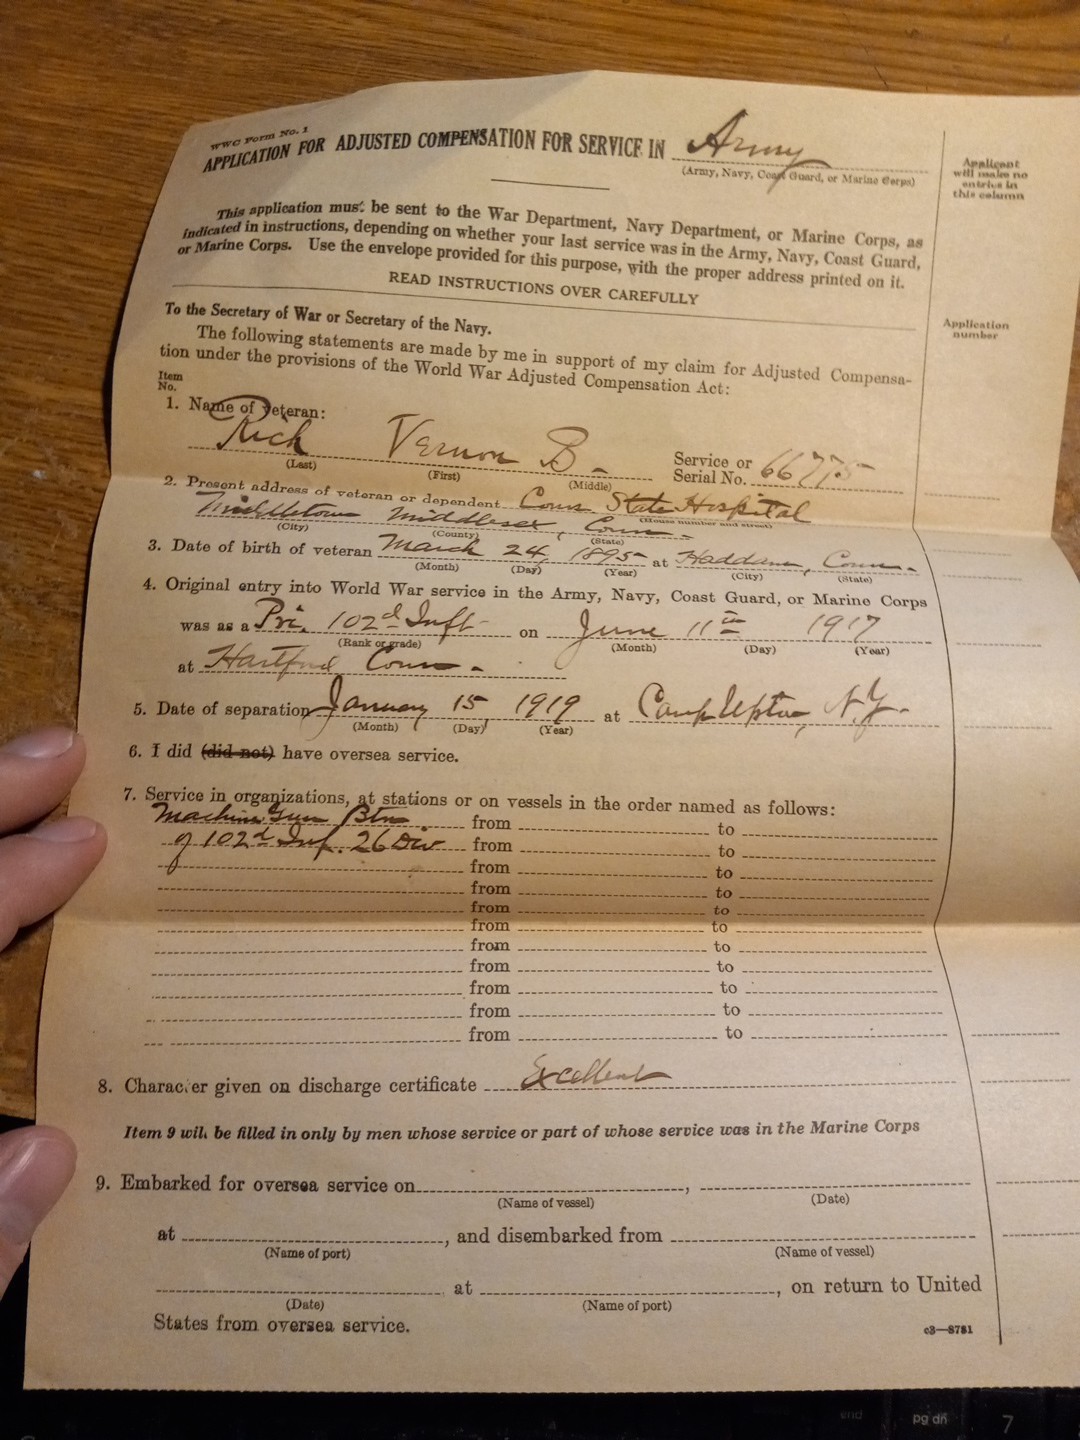 WWC Form No. 1
APPLICATION FOR ADJUSTED COMPENSATION FOR SERVICE IN Army
(Army, Navy, Coast Guard, or Marine Corps)
Applicant
will make no
entries in
this column
This application must be sent to the War Department, Navy Department, or Marine Corps, as
indicated in instructions, depending on whether your last service was in the Army, Navy, Coast Guard,
or Marine Corps. Use the envelope provided for this purpose, with the proper address printed on it.
READ INSTRUCTIONS OVER CAREFULLY
To the Secretary of War or Secretary of the Navy.
Application
number
The following statements are made by me in support of my claim for Adjusted Compensa-
tion under the provisions of the World War Adjusted Compensation Act:
Item
No.
1. Name of veteran:
Rich Vernon B. Service or
Serial No. 66775
(Last) (First) (Middle)
2. Present address of veteran or dependent Conn State Hospital
(House number and street)
Middletown Middlesex, Conn.
(City) (County) (State)
3. Date of birth of veteran March 24, 1895 at Haddam, Conn.
(Month) (Day) (Year) (City) (State)
4. Original entry into World War service in the Army, Navy, Coast Guard, or Marine Corps
was as a Pri. 102d Inft on June 11th 1917
(Rank or grade) (Month) (Day) (Year)
at Hartford Conn.
5. Date of separation January 15, 1919 at Camp Upton, N.Y.
(Month) (Day) (Year)
6. I did (did not) have oversea service.
7. Service in organizations, at stations or on vessels in the order named as follows:
Machine Gun Btn from to
of 102d Inf. 26 Div from to
from to
from to
from to
from to
from to
from to
from to
from to
from to
8. Character given on discharge certificate Excellent
Item 9 will be filled in only by men whose service or part of whose service was in the Marine Corps
9. Embarked for oversea service on ,
(Name of vessel) (Date)
at , and disembarked from
(Name of port) (Name of vessel)
at , on return to United
(Date) (Name of port)
States from oversea service.
c3—8781
end
pg dn
7